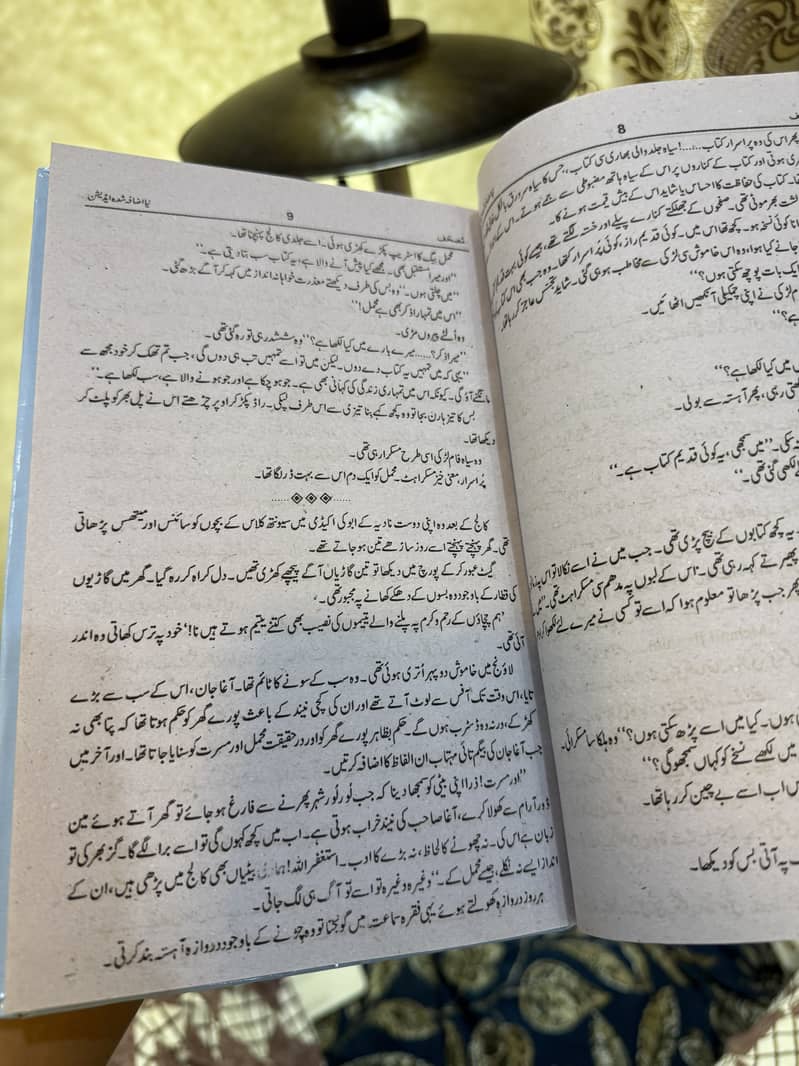 8
پھر اس کی وہ پراسرار کتاب......! سیاہ جلد والی بھاری سی کتاب، جس کا سیاہ سرورق بالکل خالی
ہوتی اور کتاب کے کناروں پر اس کے سیاہ ہاتھ مضبوطی سے جمے ہوتے۔ اس کے
کتاب کی حفاظت کا احساس یا شاید اس کے بیش قیمت ہونے کا۔
بھر موٹی تھی۔ صفحوں کے جھلکتے کنارے پیلے اور خستہ لگتے تھے، جیسے کوئی بہت قدیم
نسخہ ہو۔ کچھ تھا اس میں۔ کوئی قدیم راز، کوئی پُراسرار کتھا۔ وہ جب بھی اس کتاب
جانے کیا ہوا، وہ اس خاموش سی لڑکی سے مخاطب ہو ہی گئی۔ شاید تجسس عاجز کر رہا تھا
ایک بات پوچھ سکتی ہوں؟“
لڑکی نے اپنی چمکیلی آنکھیں اٹھائیں۔
ہے؟“
میں کیا لکھا ہے؟“
رہی، پھر آہستہ سے بولی۔
سکی۔ ”میں سمجھی، یہ کوئی قدیم کتاب ہے۔“
لکھی گئی تھی۔“
یہ کچھ کتابوں کے بیچ پڑی تھی۔ جب میں نے اسے نکالا تو اس پہ
پھیرتے کہہ رہی تھی۔ اس کے لبوں پہ مدھم سی مسکراہٹ تھی۔
پھر جب پڑھا تو معلوم ہوا کہ اسے تو کسی نے میرے لئے لکھا
ہوں۔ کیا میں اسے پڑھ سکتی ہوں؟“ وہ ہلکا سا مسکرائی۔
میں لکھے نسخے کو کہاں سمجھو گی؟“
اب اسے بے چین کر رہا تھا۔
پہ آتی بس کو دیکھا۔
مصحف
9
نیا اضافہ شدہ ایڈیشن
محمل بیگ کا اسٹریپ پکڑے کھڑی ہوئی۔ اسے جلدی کالج پہنچنا تھا۔
”اور میرا مستقبل بھی۔ مجھے کیا پیش آنے والا ہے، یہ کتاب سب بتا دیتی ہے۔“
”میں چلتی ہوں۔“ وہ بس کی طرف دیکھتے معذرت خواہانہ انداز میں کہہ کر آگے بڑھ گئی۔
”اس میں تمہارا ذکر بھی ہے محمل!“
وہ اُلٹے پیروں مڑی۔
”میرا ذکر؟...... میرے بارے میں کیا لکھا ہے؟“ وہ ششدر ہی تو رہ گئی تھی۔
”یہی کہ میں تمہیں یہ کتاب دے دوں۔ لیکن میں تو اسے تمہیں تب ہی دوں گی، جب تم تھک کر خود مجھ سے
مانگنے آؤ گی۔ کیونکہ اس میں تمہاری زندگی کی کہانی بھی ہے۔ جو ہو چکا ہے اور جو ہونے والا ہے، سب لکھا ہے۔“
بس کا تیز ہارن بجا تو وہ کچھ کہے بنا تیزی سے اس طرف لپکی۔ راڈ پکڑ کر اوپر چڑھتے اس نے پل بھر کو پلٹ کر
دیکھا تھا۔
وہ سیاہ فام لڑکی اسی طرح مسکرا رہی تھی۔
پُراسرار، معنی خیز مسکراہٹ۔ محمل کو ایک دم اس سے بہت ڈر لگا تھا۔
کالج کے بعد وہ اپنی دوست نادیہ کے ابو کی اکیڈمی میں سیونتھ کلاس کے بچوں کو سائنس اور میتھس پڑھاتی
تھی۔ گھر پہنچتے پہنچتے اسے روز ساڑھے تین ہو جاتے تھے۔
گیٹ عبور کر کے پورچ میں دیکھا تو تین گاڑیاں آگے پیچھے کھڑی تھیں۔ دل کراہ کر رہ گیا۔ گھر میں گاڑیوں
کی قطار کے باوجود وہ بسوں کے دھکے کھانے پہ مجبور تھی۔
’ہم چچاؤں کے رحم و کرم پہ پلنے والے یتیموں کی نصیب بھی کتنے یتیم ہوتے ہیں نا!‘ خود پہ ترس کھاتی وہ اندر
آئی تھی۔
لاؤنج میں خاموش دوپہر اُتری ہوئی تھی۔ وہ سب کے سونے کا ٹائم تھا۔ آغا جان، اس کے سب سے بڑے
تایا، اس وقت تک آفس سے لوٹ آتے تھے اور ان کی کچی نیند کے باعث پورے گھر کو حکم ہوتا تھا کہ پتا بھی نہ
کھڑکے، ورنہ وہ ڈسٹرب ہوں گے۔ حکم بظاہر پورے گھر کو اور در حقیقت محمل اور مسرت کو سنایا جاتا تھا۔ اور آخر میں
جب آغا جان کی بیگم تائی مہتاب ان الفاظ کا اضافہ کرتیں۔
”اور مسرت! ذرا اپنی بیٹی کو سمجھا دینا کہ جب لُور لُور شہر پھرنے سے فارغ ہو جائے تو گھر آتے ہوئے مین
ڈور آرام سے کھولا کرے، آغا صاحب کی نیند خراب ہوتی ہے۔ اب میں کچھ کہوں گی تو اسے برا لگے گا۔ گز بھر کی تو
زبان ہے اس کی۔ نہ چھوٹے کا لحاظ، نہ بڑے کا ادب۔ استغفر اللہ! ہماری بیٹیاں بھی کالج میں پڑھی ہیں، ان کے
انداز ایسے نہ نکلے، جیسے محمل کے۔“ وغیرہ وغیرہ تو اسے تو آگ ہی لگ جاتی۔
ہر روز دروازہ کھولتے ہوئے یہی فقرہ سماعت میں گونجتا تو وہ چڑنے کے باوجود دروازہ آہستہ بند کرتی۔